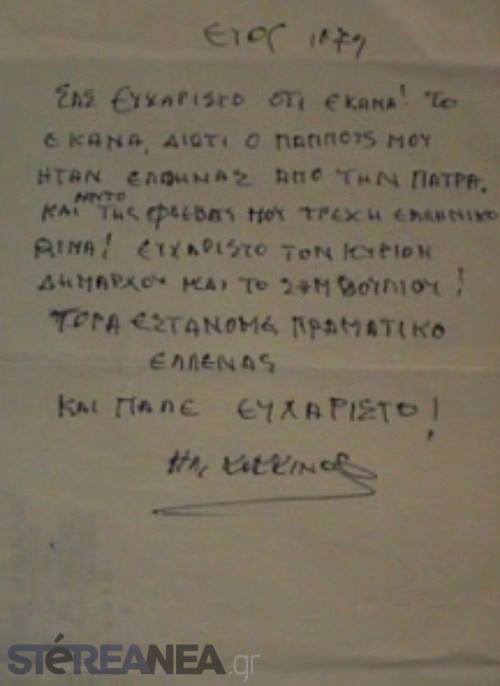 ΕΤΟΣ 1879
ΣΑΣ ΕΥΧΑΡΙΣΤΟ ΟΤΙ ΕΚΑΝΑ! ΤΟ
ΕΚΑΝΑ, ΔΙΟΤΙ Ο ΠΑΠΠΟΥΣ ΜΟΥ
ΗΤΑΝ ΕΛΛΗΝΑΣ ΑΠΟ ΤΗΝ ΠΑΤΡΑ.
ΚΑΙ ΑΥΤΟ ΤΗΣ ΦΛΕΒΕΣ ΜΟΥ ΤΡΕΧΗ ΕΛΛΗΝΙΚΟ
! ΕΥΧΑΡΙΣΤΟ ΤΟΝ ΚΥΡΙΟΝ
ΔΗΜΑΡΧΟΥ ΚΑΙ ΤΟ ΣΥΜΒΟΥΛΙΟΥ!
ΤΟΡΑ ΕΣΤΑΝΟΜΕ ΠΡΑΜΑΤΙΚΟ
ΕΛΛΕΝΑΣ
ΚΑΙ ΠΑΛΕ ΕΥΧΑΡΙΣΤΟ!
ΚΟΚΚΙΝΟΣ
STEREANEA.gr